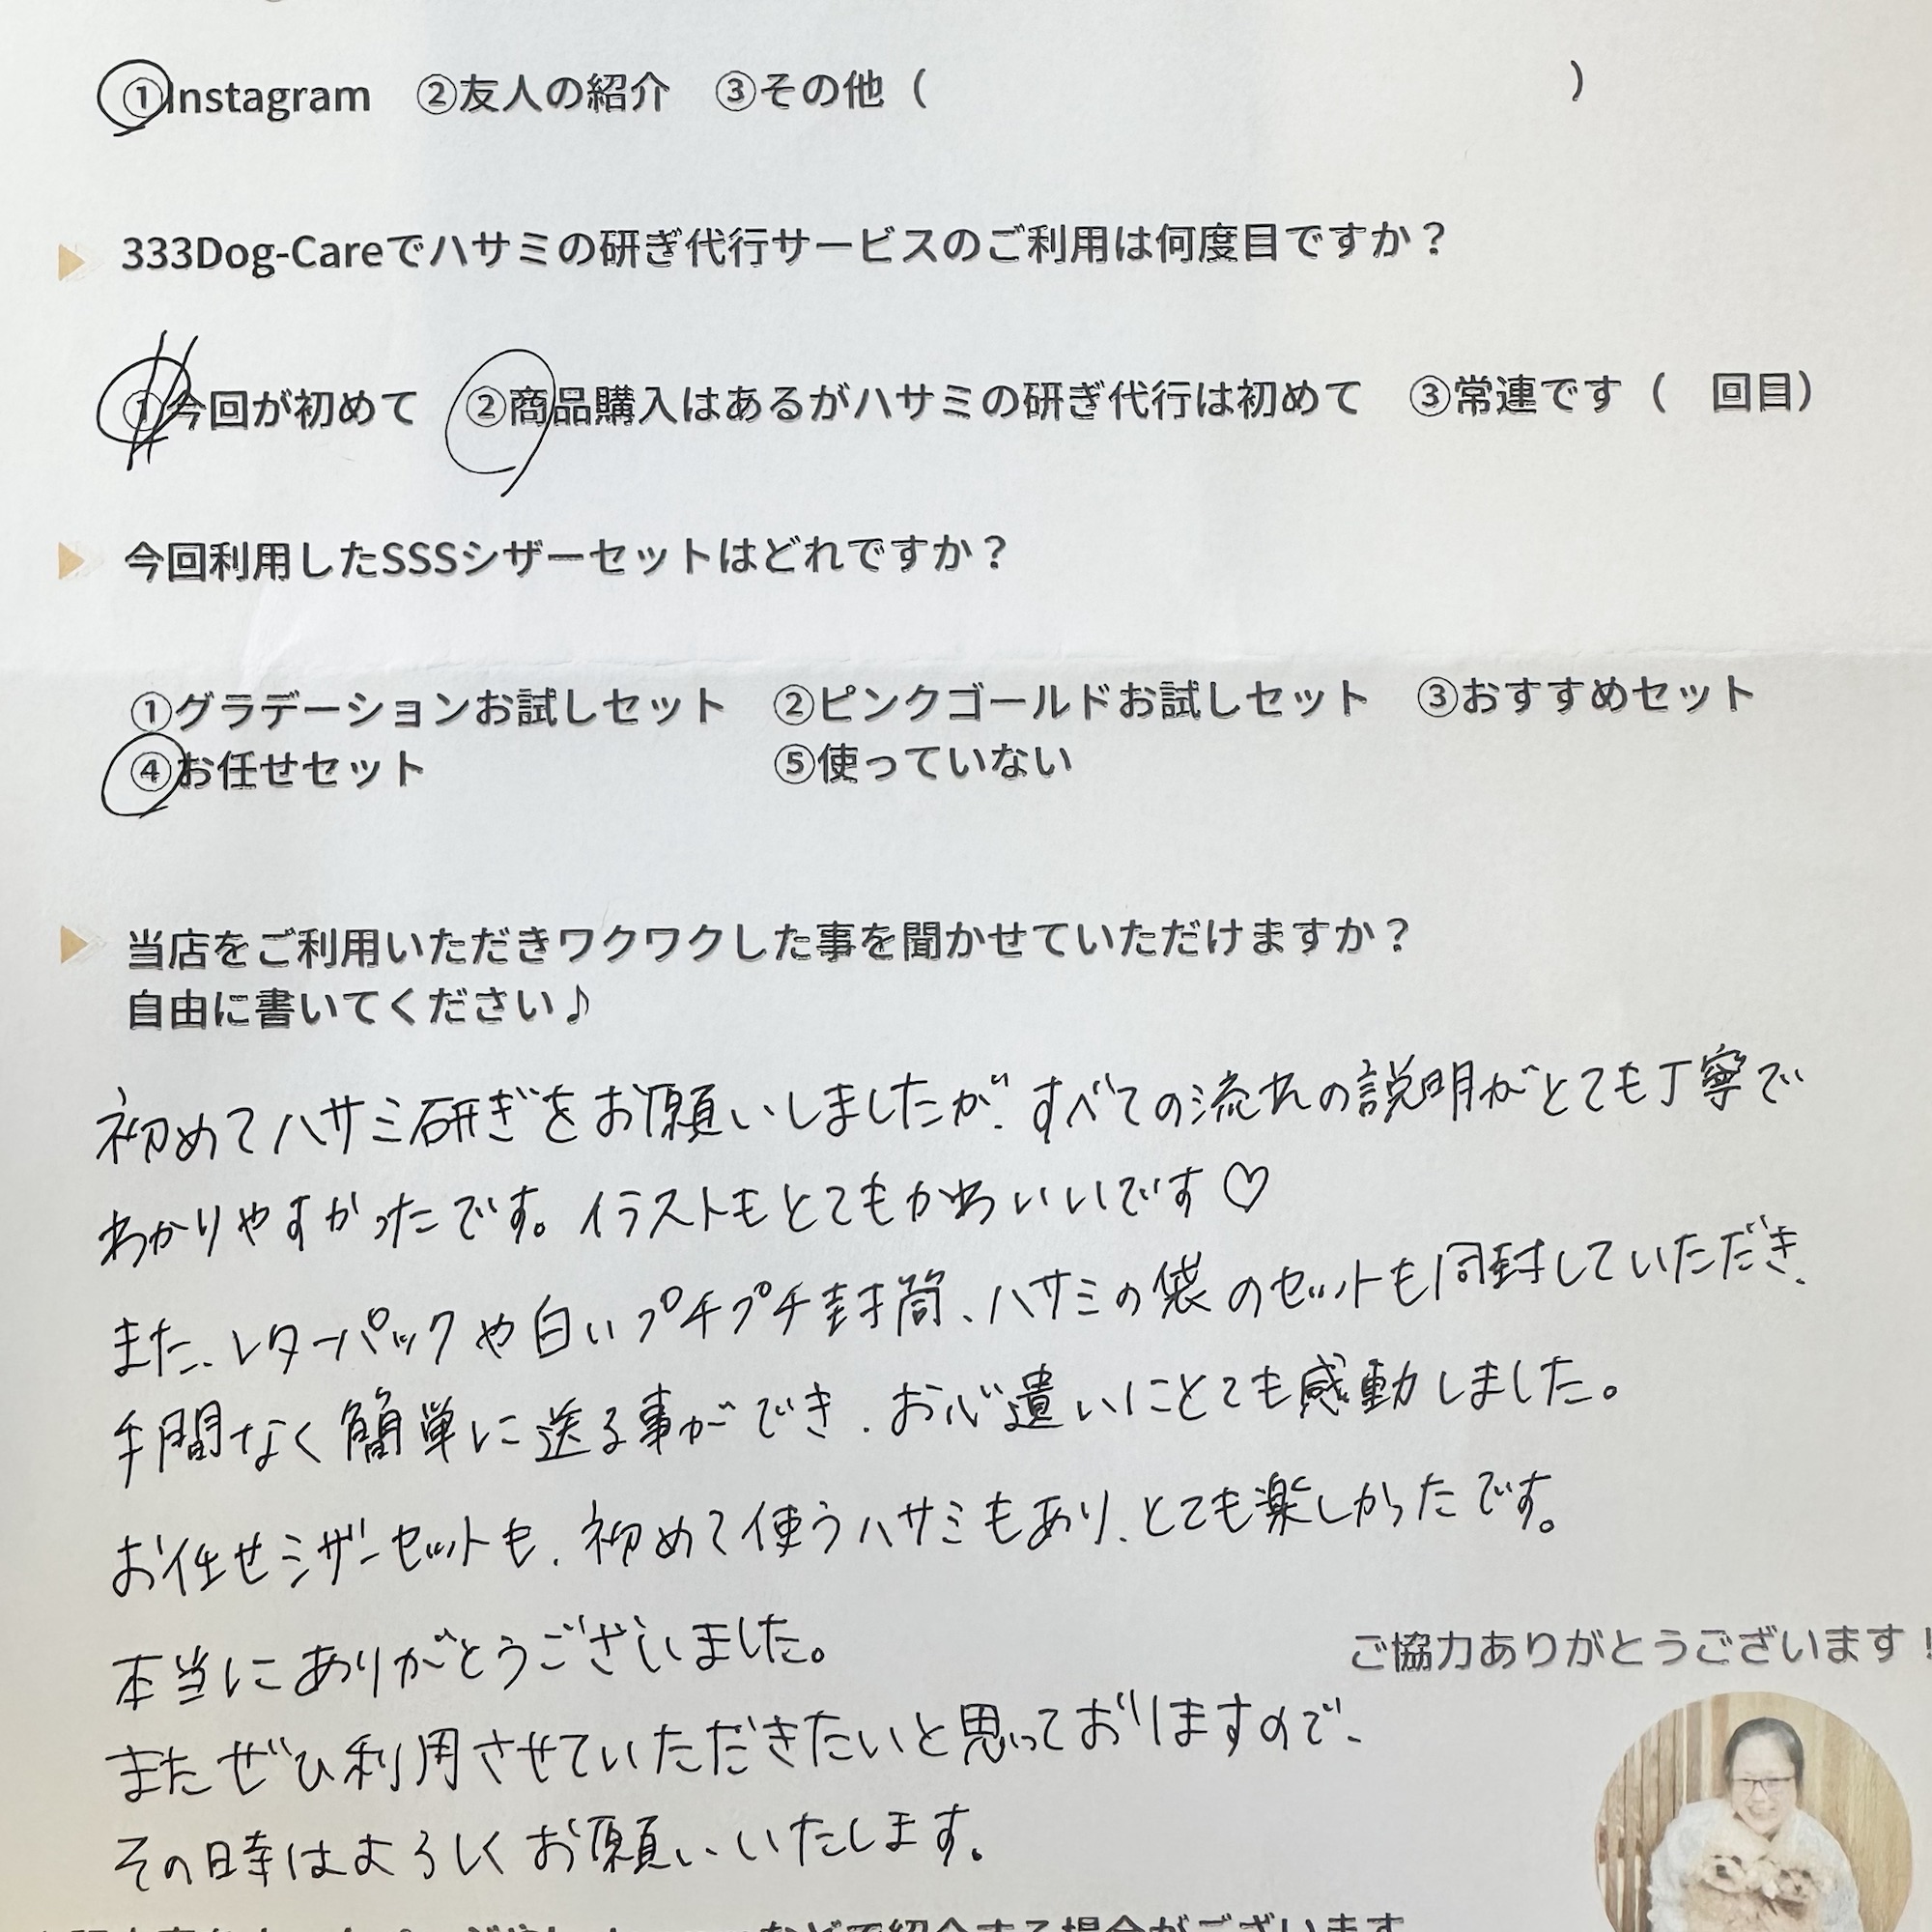 ①Instagram ②友人の紹介 ③その他（ ）
333Dog-Careでハサミの研ぎ代行サービスのご利用は何度目ですか？
①今回が初めて ②商品購入はあるがハサミの研ぎ代行は初めて ③常連です（ 回目）
今回利用したSSSシザーセットはどれですか？
①グラデーションお試しセット ②ピンクゴールドお試しセット ③おすすめセット
④お任せセット ⑤使っていない
当店をご利用いただきワクワクした事を聞かせていただけますか？
自由に書いてください♪
初めてハサミ研ぎをお願いしましたが、すべての流れの説明がとても丁寧で
わかりやすかったです。イラストもとてもかわいいです♡
また、レターパックや白いプチプチ封筒、ハサミの袋のセットも同封していただき、
手間なく簡単に送る事ができ、お心遣いにとても感動しました。
お任せシザーセットも、初めて使うハサミもあり、とても楽しかったです。
本当にありがとうございました。
ご協力ありがとうございます！
またぜひ利用させていただきたいと思っておりますので、
その時はよろしくお願いいたします。
などで紹介する場合がございます